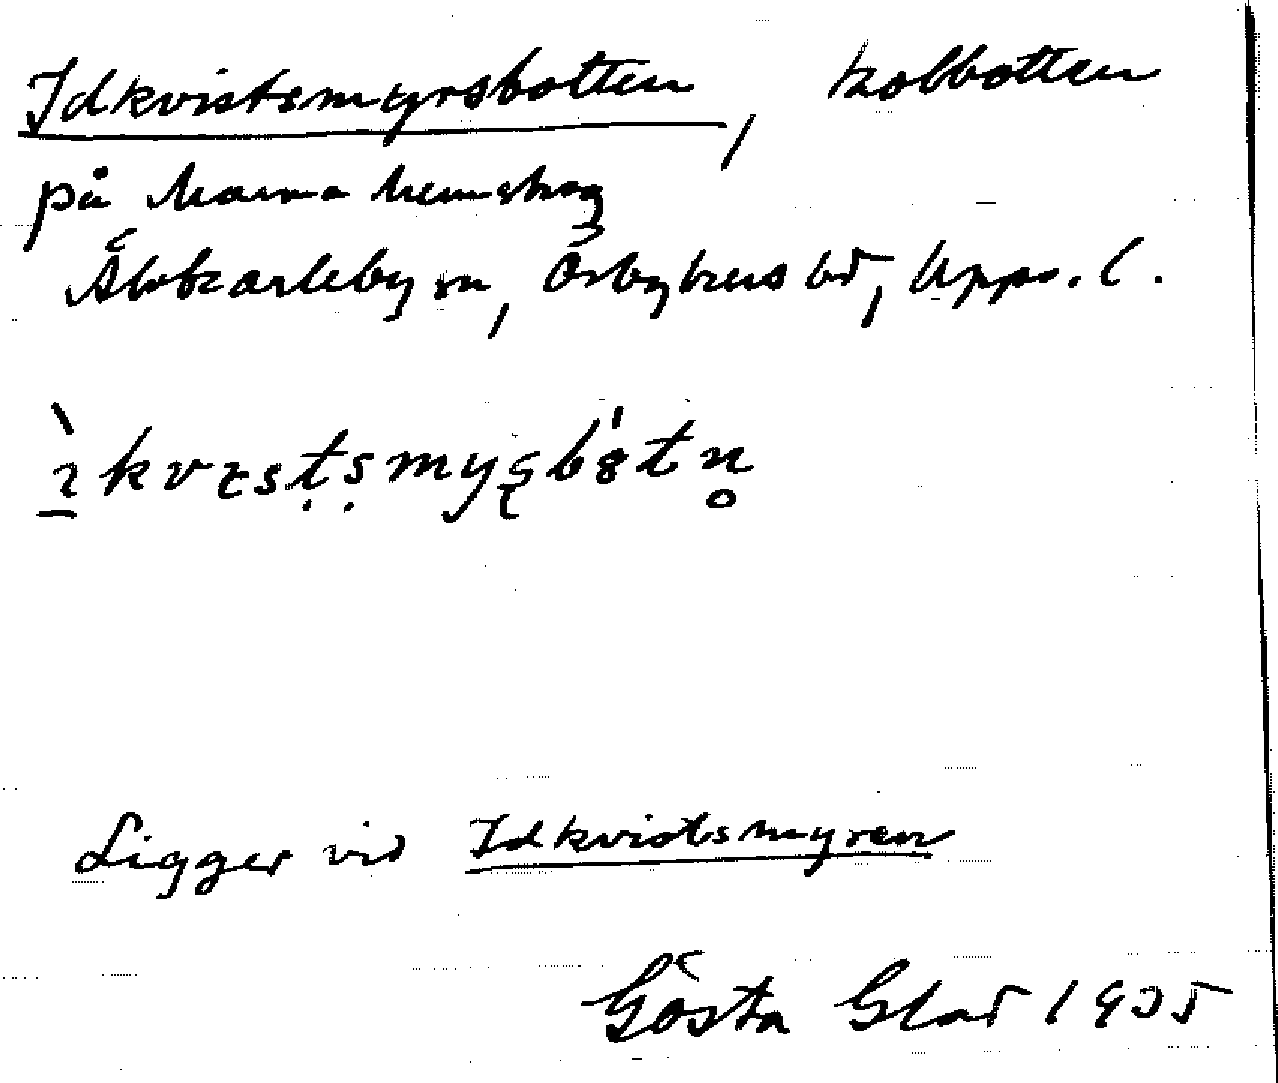 Idkvistsmyrsbotten, kolbotten
på Marma hemskog
Älvkarleby sn, Örbyhus hd, Upps. l.
ìkvɩsṭṣmyʂbɵ́tn̥
Ligger vid Idkvistsmyren
Gösta Glad 1935